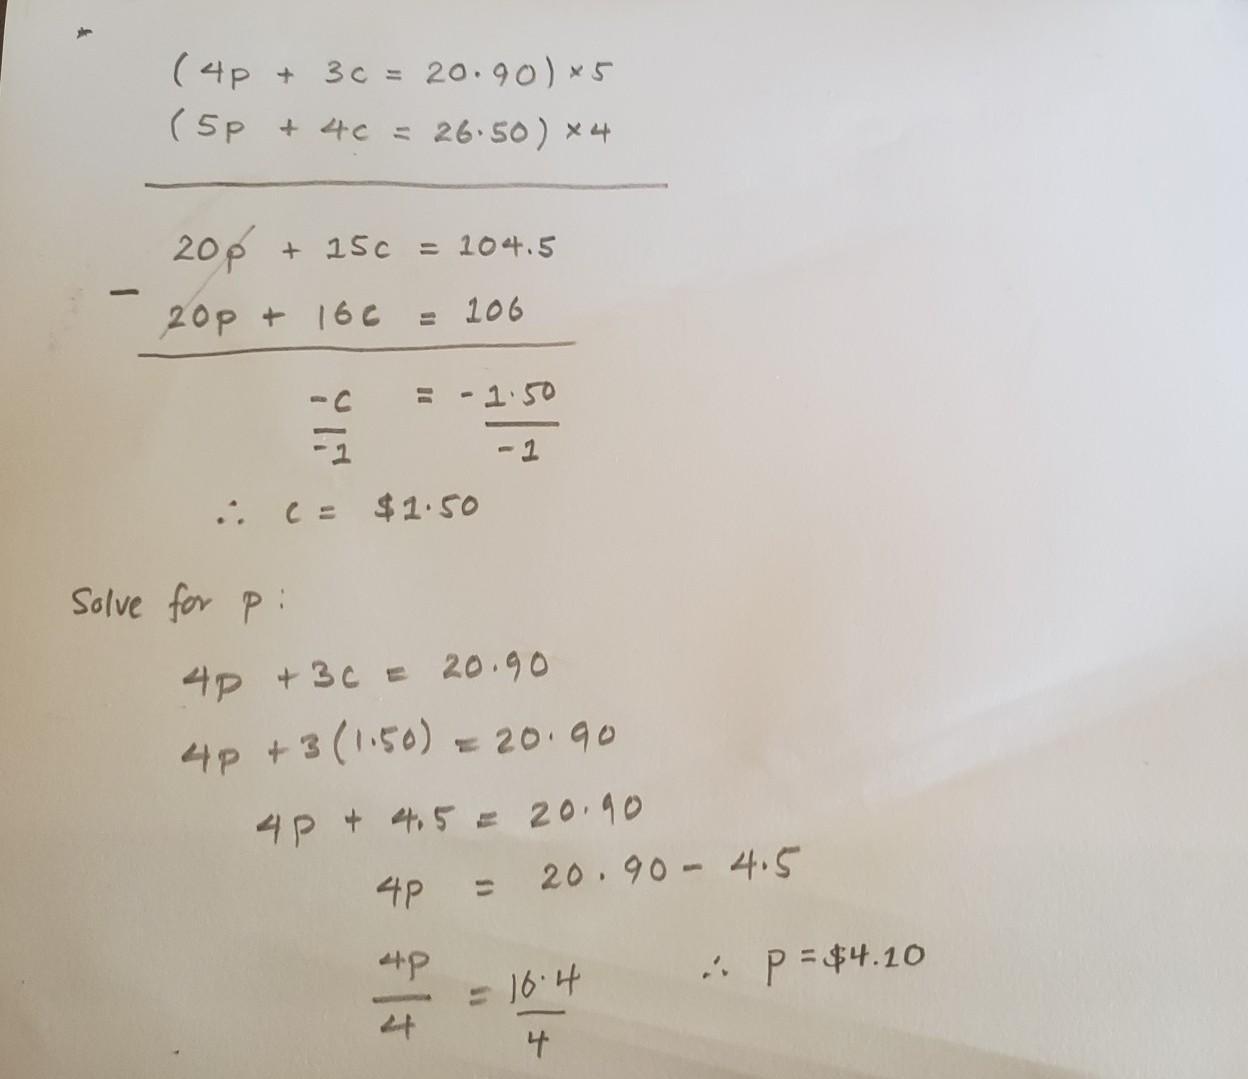 *
(4p + 3c = 20.90) × 5
(5p + 4c = 26.50) × 4
20p + 15c = 104.5
-
20p + 16c = 106
-c = -1.50
-1 -1
∴ c = $1.50
Solve for p:
4p + 3c = 20.90
4p + 3(1.50) = 20.90
4p + 4.5 = 20.90
4p = 20.90 - 4.5
4p = 16.4 ∴ p = $4.10
4 4